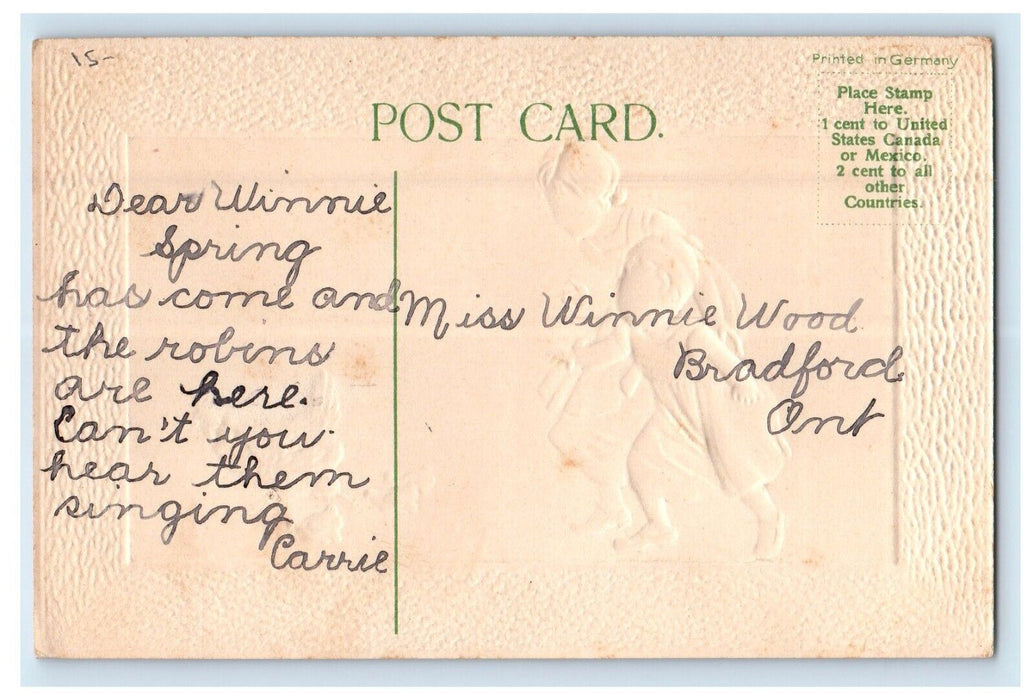 15-
Printed in Germany
POST CARD.
Place Stamp
Here.
1 cent to United
States Canada
or Mexico.
2 cent to all
other
Countries.
Dear Winnie
Spring
has come and
the robins
are here.
Can't you
hear them
singing
Carrie
Miss Winnie Wood
Bradford
Ont